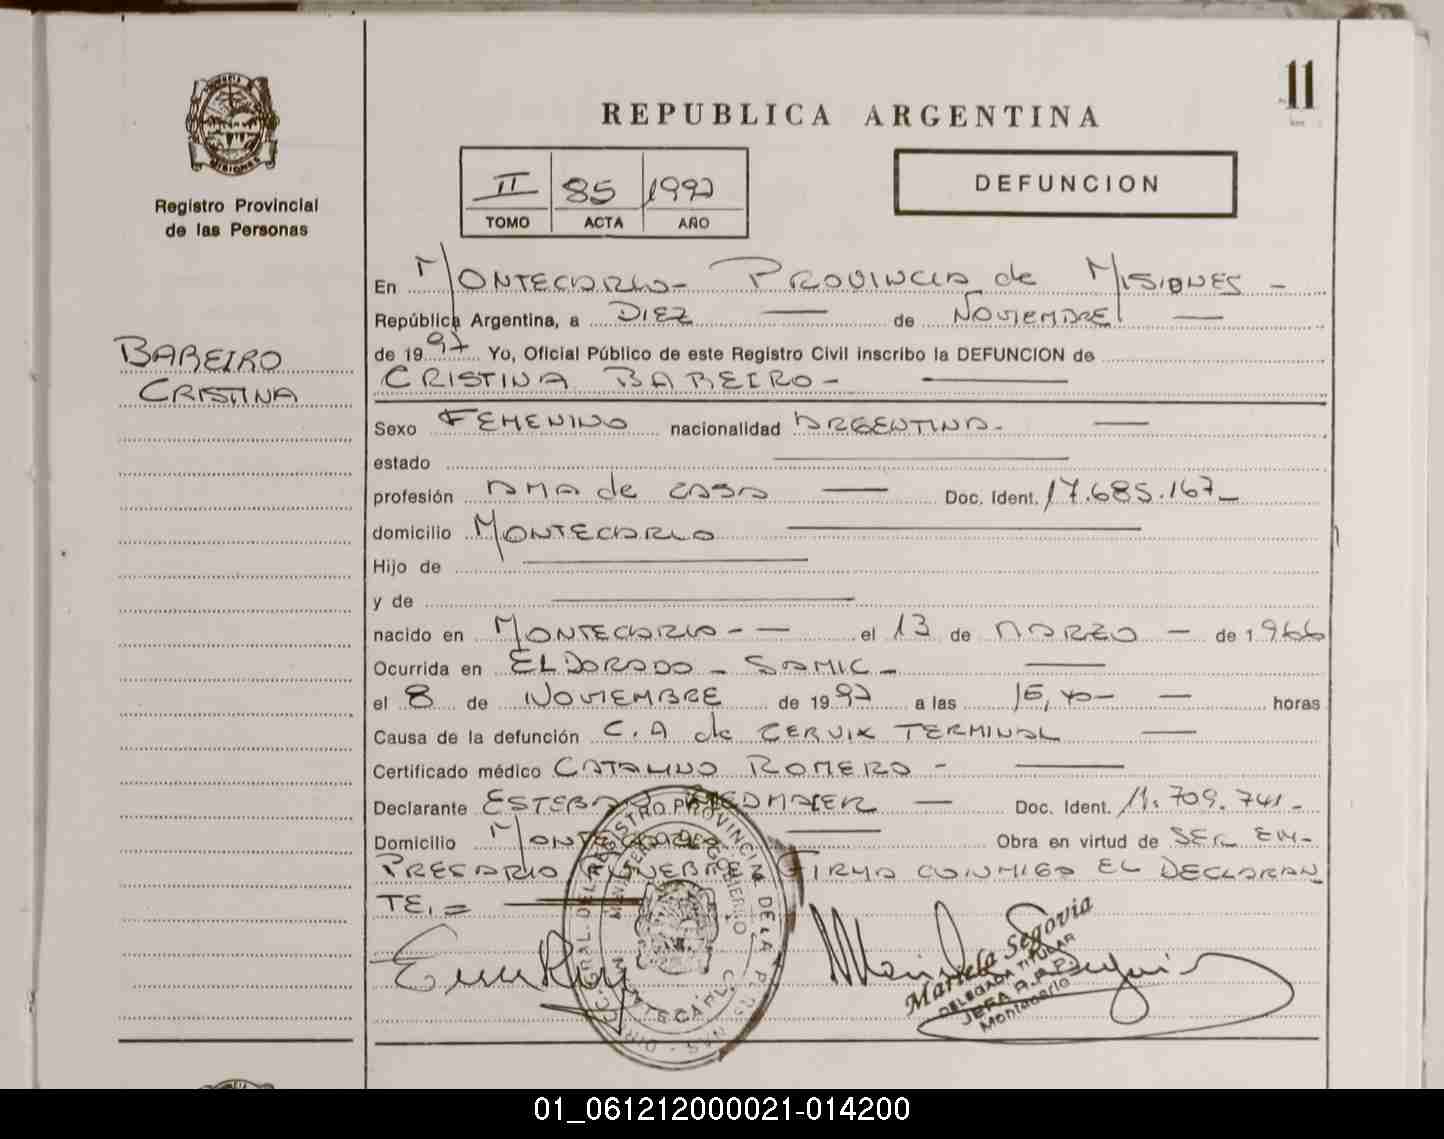 11
REPUBLICA ARGENTINA
MISIONES
Registro Provincial
de las Personas
II 85 1997
TOMO ACTA AÑO
DEFUNCION
BAREIRO
CRISTINA
En MONTECARLO- PROVINCIA de MISIONES -
República Argentina, a DIEZ — de NOVIEMBRE —
de 1997 Yo, Oficial Público de este Registro Civil inscribo la DEFUNCION de
CRISTINA BAREIRO - —
Sexo FEMENINO nacionalidad ARGENTINA. —
estado —
profesión AMA de CASA — Doc. Ident. 17.685.167-
domicilio MONTECARLO —
Hijo de —
y de —
nacido en MONTECARLO - — el 13 de MARZO — de 1.966
Ocurrida en ELDORADO - SAMIC - —
el 8 de NOVIEMBRE de 1997 a las — horas
Causa de la defunción C.A de CERVIX TERMINAL —
Certificado médico CATALINO ROMERO - —
Declarante ESTEBAN — Doc. Ident. 11.709.741-
Domicilio MONTECARLO — Obra en virtud de SER EM-
PRESARIO FUNEBRE FIRMA CONMIGO EL DECLARAN
TE. =
Mariela Segovia
DELEGADA TITULAR
JEFA R.P.P.
Montecarlo
01_061212000021-014200